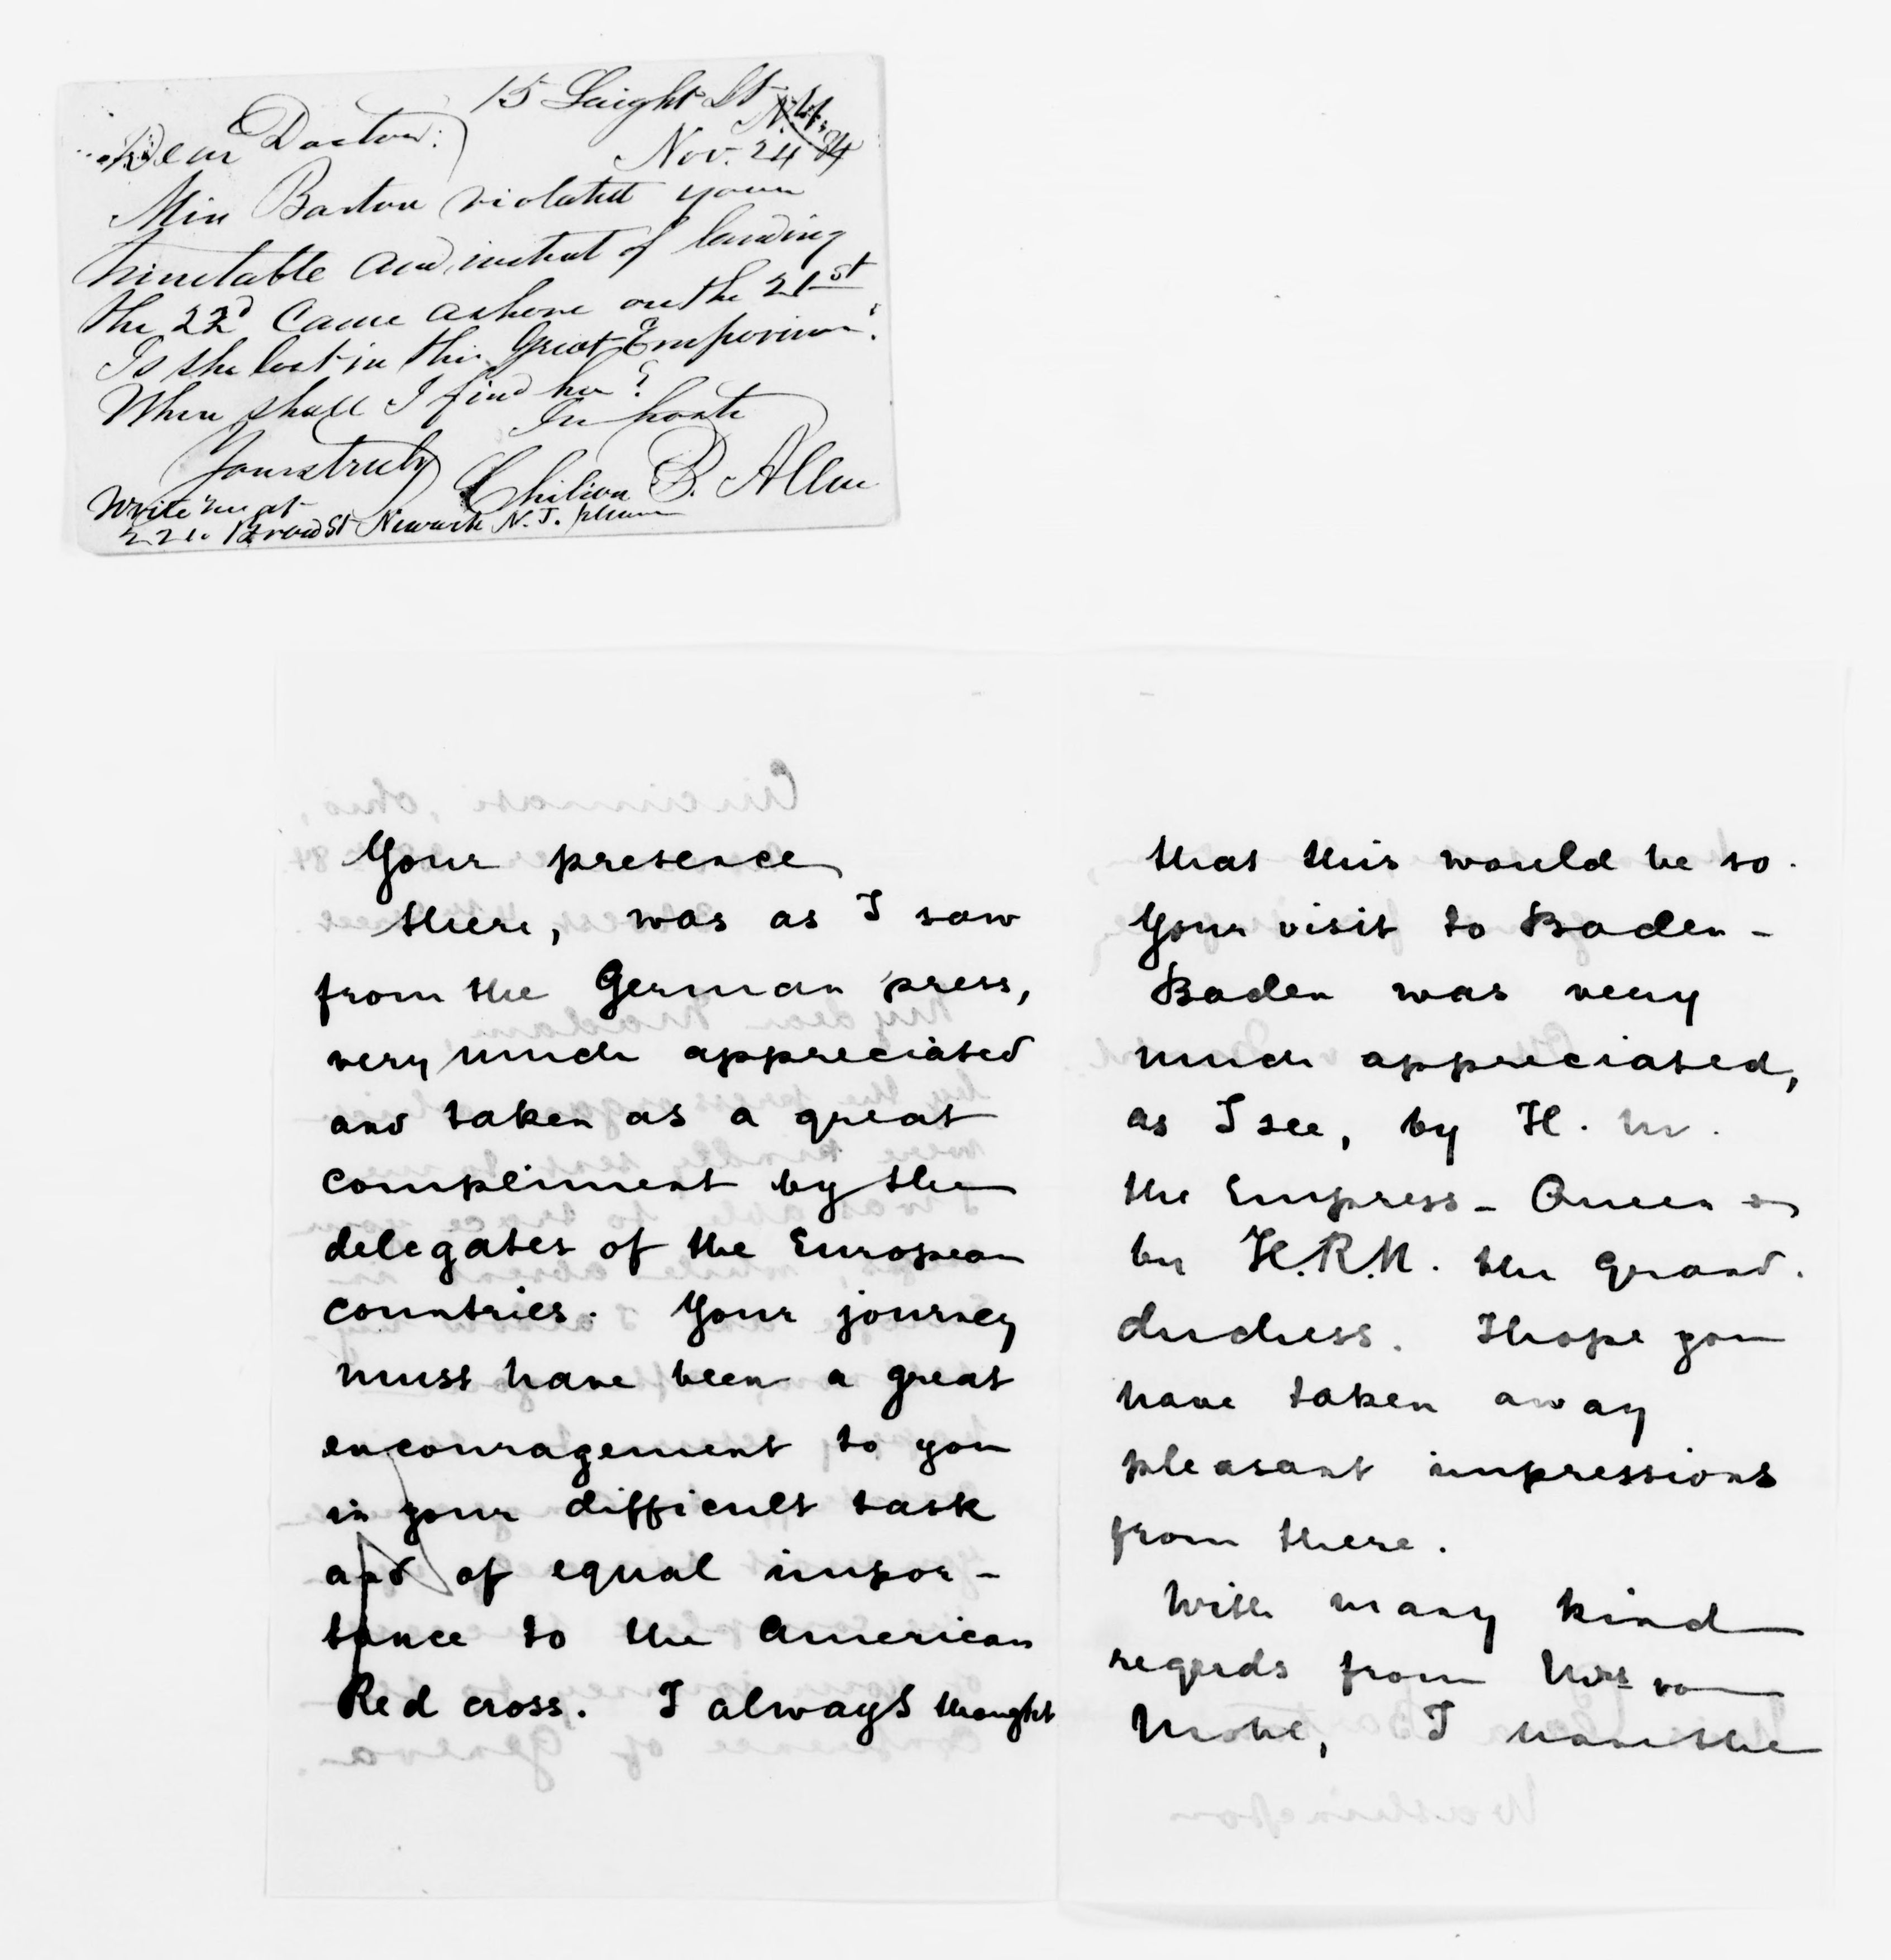 15 Laight St N.Y.
Dear Doctor: Nov. 24 84
Miss Barton violated your
timetable and, instead of landing
the 22d came ashore on the 21st
Is she lost in this Great Emporium?
When shall I find her?
In haste
Yours truly Chilion B. Allen
Write me at
Broad St Newark N.J. please
Your presence
there, was as I saw
from the German press,
very much appreciated
and taken as a great
compliment by the
delegates of the European
countries. Your journey
must have been a great
encouragement to you
in your difficult task
and of equal impor-
tance to the American
Red cross. I always thought
that this would be so.
Your visit to Baden-
Baden was very
much appreciated,
as I see, by H. M.
the Empress - Queen
by H.R.H. the Grand.
duchess. I hope you
have taken away
pleasant impressions
from there.
With many kind
regards from Mrs von
Mohl, I have the